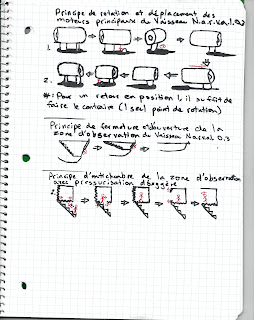 Principe de rotation et déplacement des
moteurs principaux du Vaisseau N.a.r.v.a.l. 0.2
1.
2.
*: Pour un retour en position 1, il suffit de
faire le contraire (1 seul point de rotation)
Principe de fermeture et ouverture de la
zone d'observation du Vaisseau Narval, 0.3
Principe d'antichambre de la zone d'observation
avec pressurisation d'oxygène